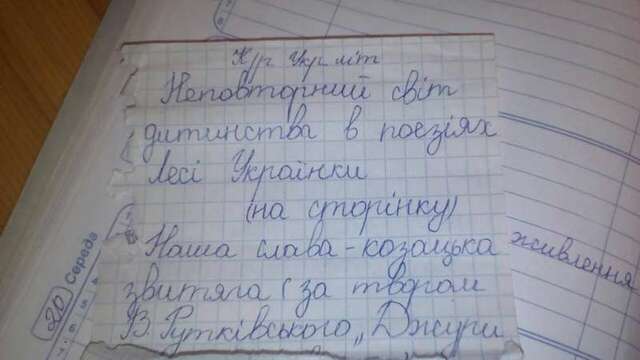 Укр літ
Неповторний світ
дитинства в поезіях
Лесі Українки
(на сторінку)
Наша слава - козацька
звитяга (за твором
В. Рутківського „Джури
живлення
20 Середа